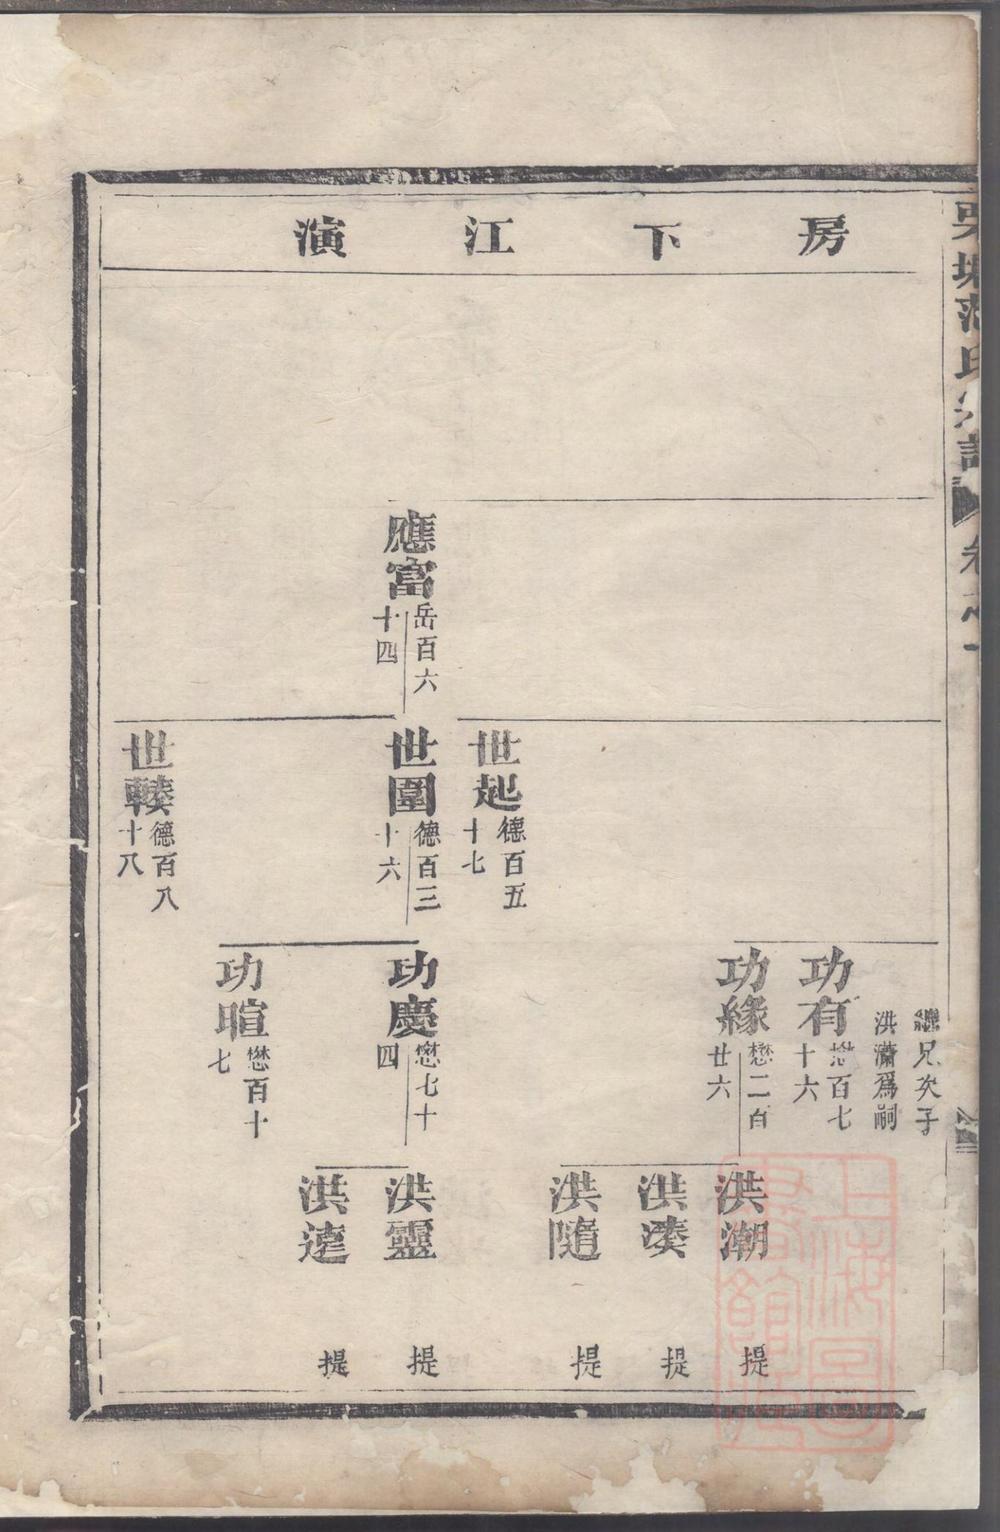 房下江演
繼兄次子
洪瀟爲嗣
功有
懋百七
十六
功緣
懋二百
廿六
洪潮
提
洪湊
提
洪隨
提
世起
德百五
十七
應富
岳百六
十四
世圍
德百三
十六
功慶
懋七十
四
洪靈
提
洪達
提
功暄
懋百十
七
世轃
德百八
十八